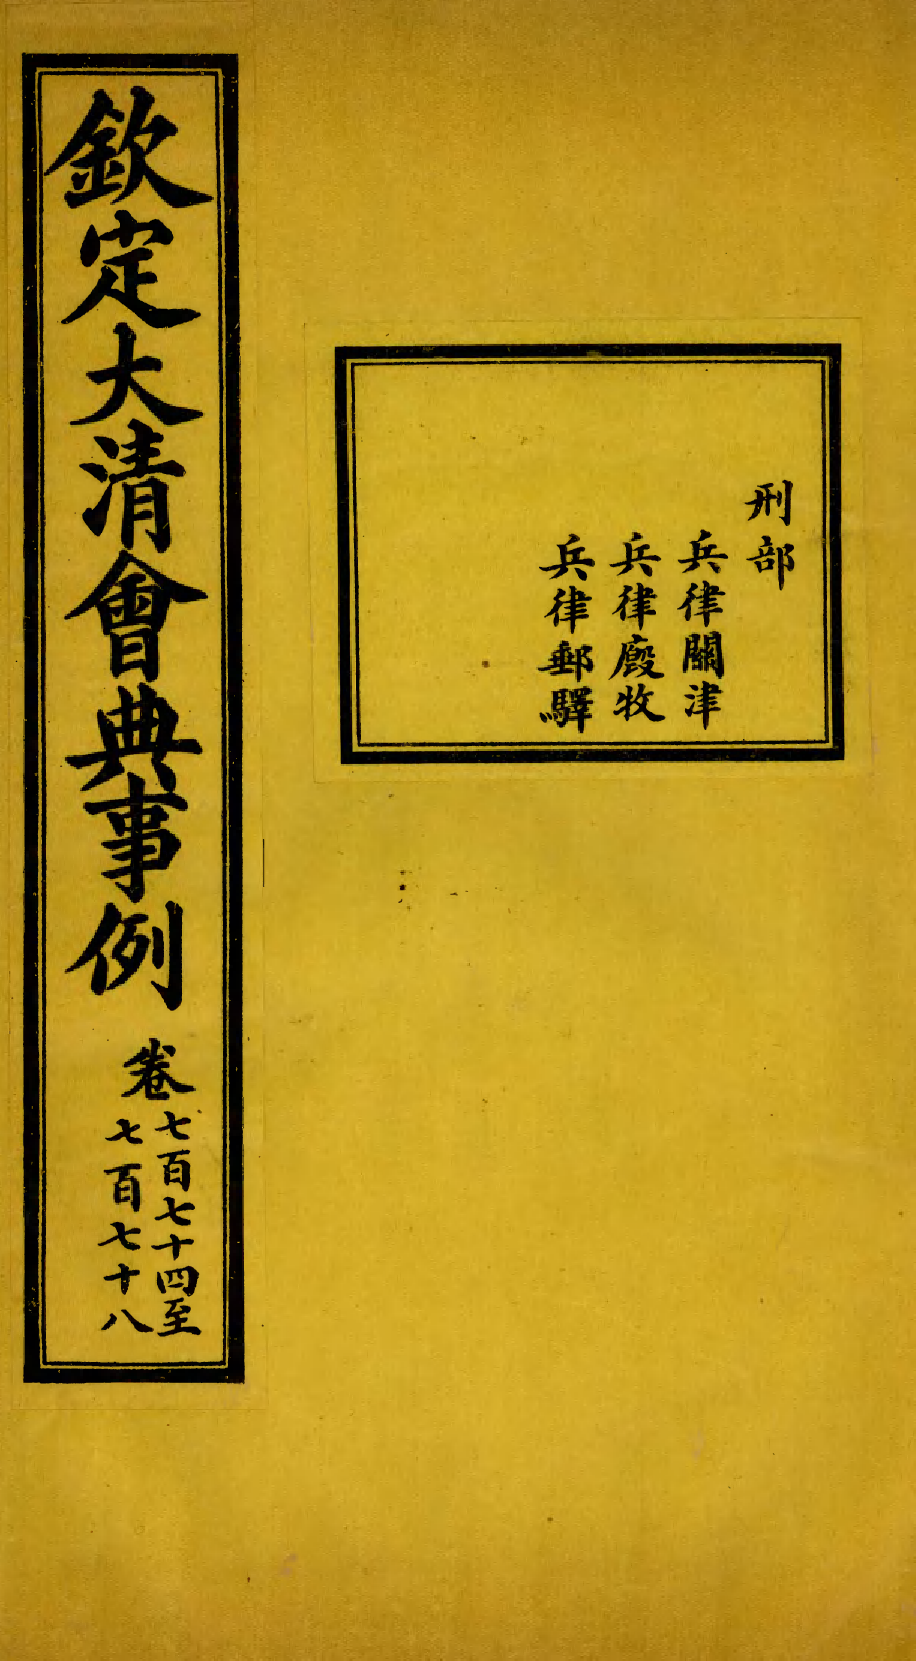 刑部
兵律關津
兵律廄牧
兵律郵驛
欽定大清會典事例
卷
七百七十四至
七百七十八